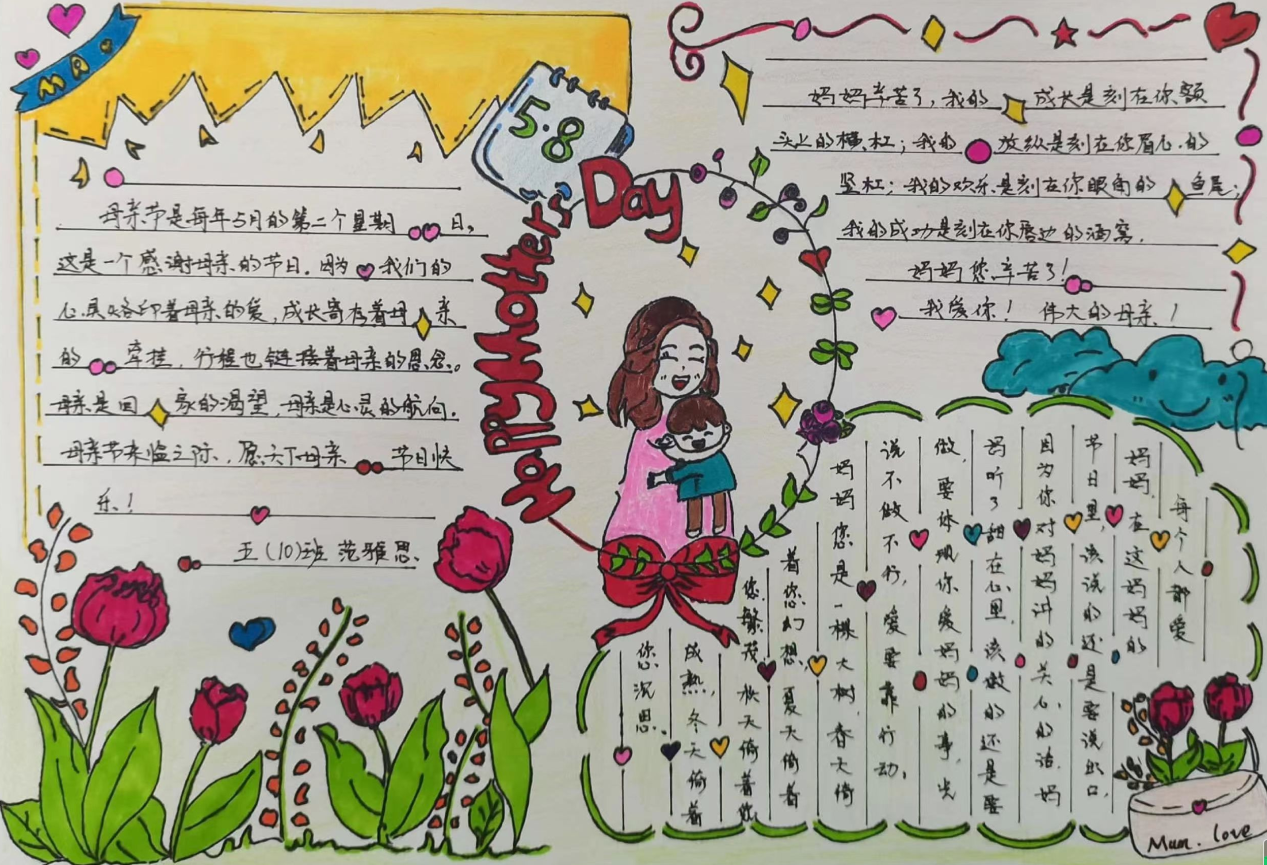 5.8
Happy Mother's Day
母亲节是每年5月的第二个星期日,
这是一个感谢母亲的节日。因为我们的
心具烙印着母亲的爱,成长寄存着母亲
的牵挂,行程也链接着母亲的思念。
母亲是回家的渴望,母亲是心灵的航向。
母亲节来临之际,愿天下母亲节日快
乐!
五(10)班 范雅思
妈妈辛苦了,我的成长是刻在你额
头上的横杠;我的放纵是刻在你眉心的
竖杠;我的欢乐是刻在你眼角的鱼尾;
我的成功是刻在你唇边的酒窝.
妈妈您辛苦了!
我爱你!伟大的母亲!
每个人都爱
妈妈,在这妈妈的
节日里,该说的还是要说出口,
因为你对妈妈讲的关心的话,妈
妈听了甜在心里,该做的还是要
做,要体现你爱妈妈的事,光
说不做不行,爱要靠行动。
妈妈您是一棵大树,春天倚
着您幻想,夏天倚着
您繁茂,秋天倚着您
成熟,冬天倚着
您沉思。
Mum. love